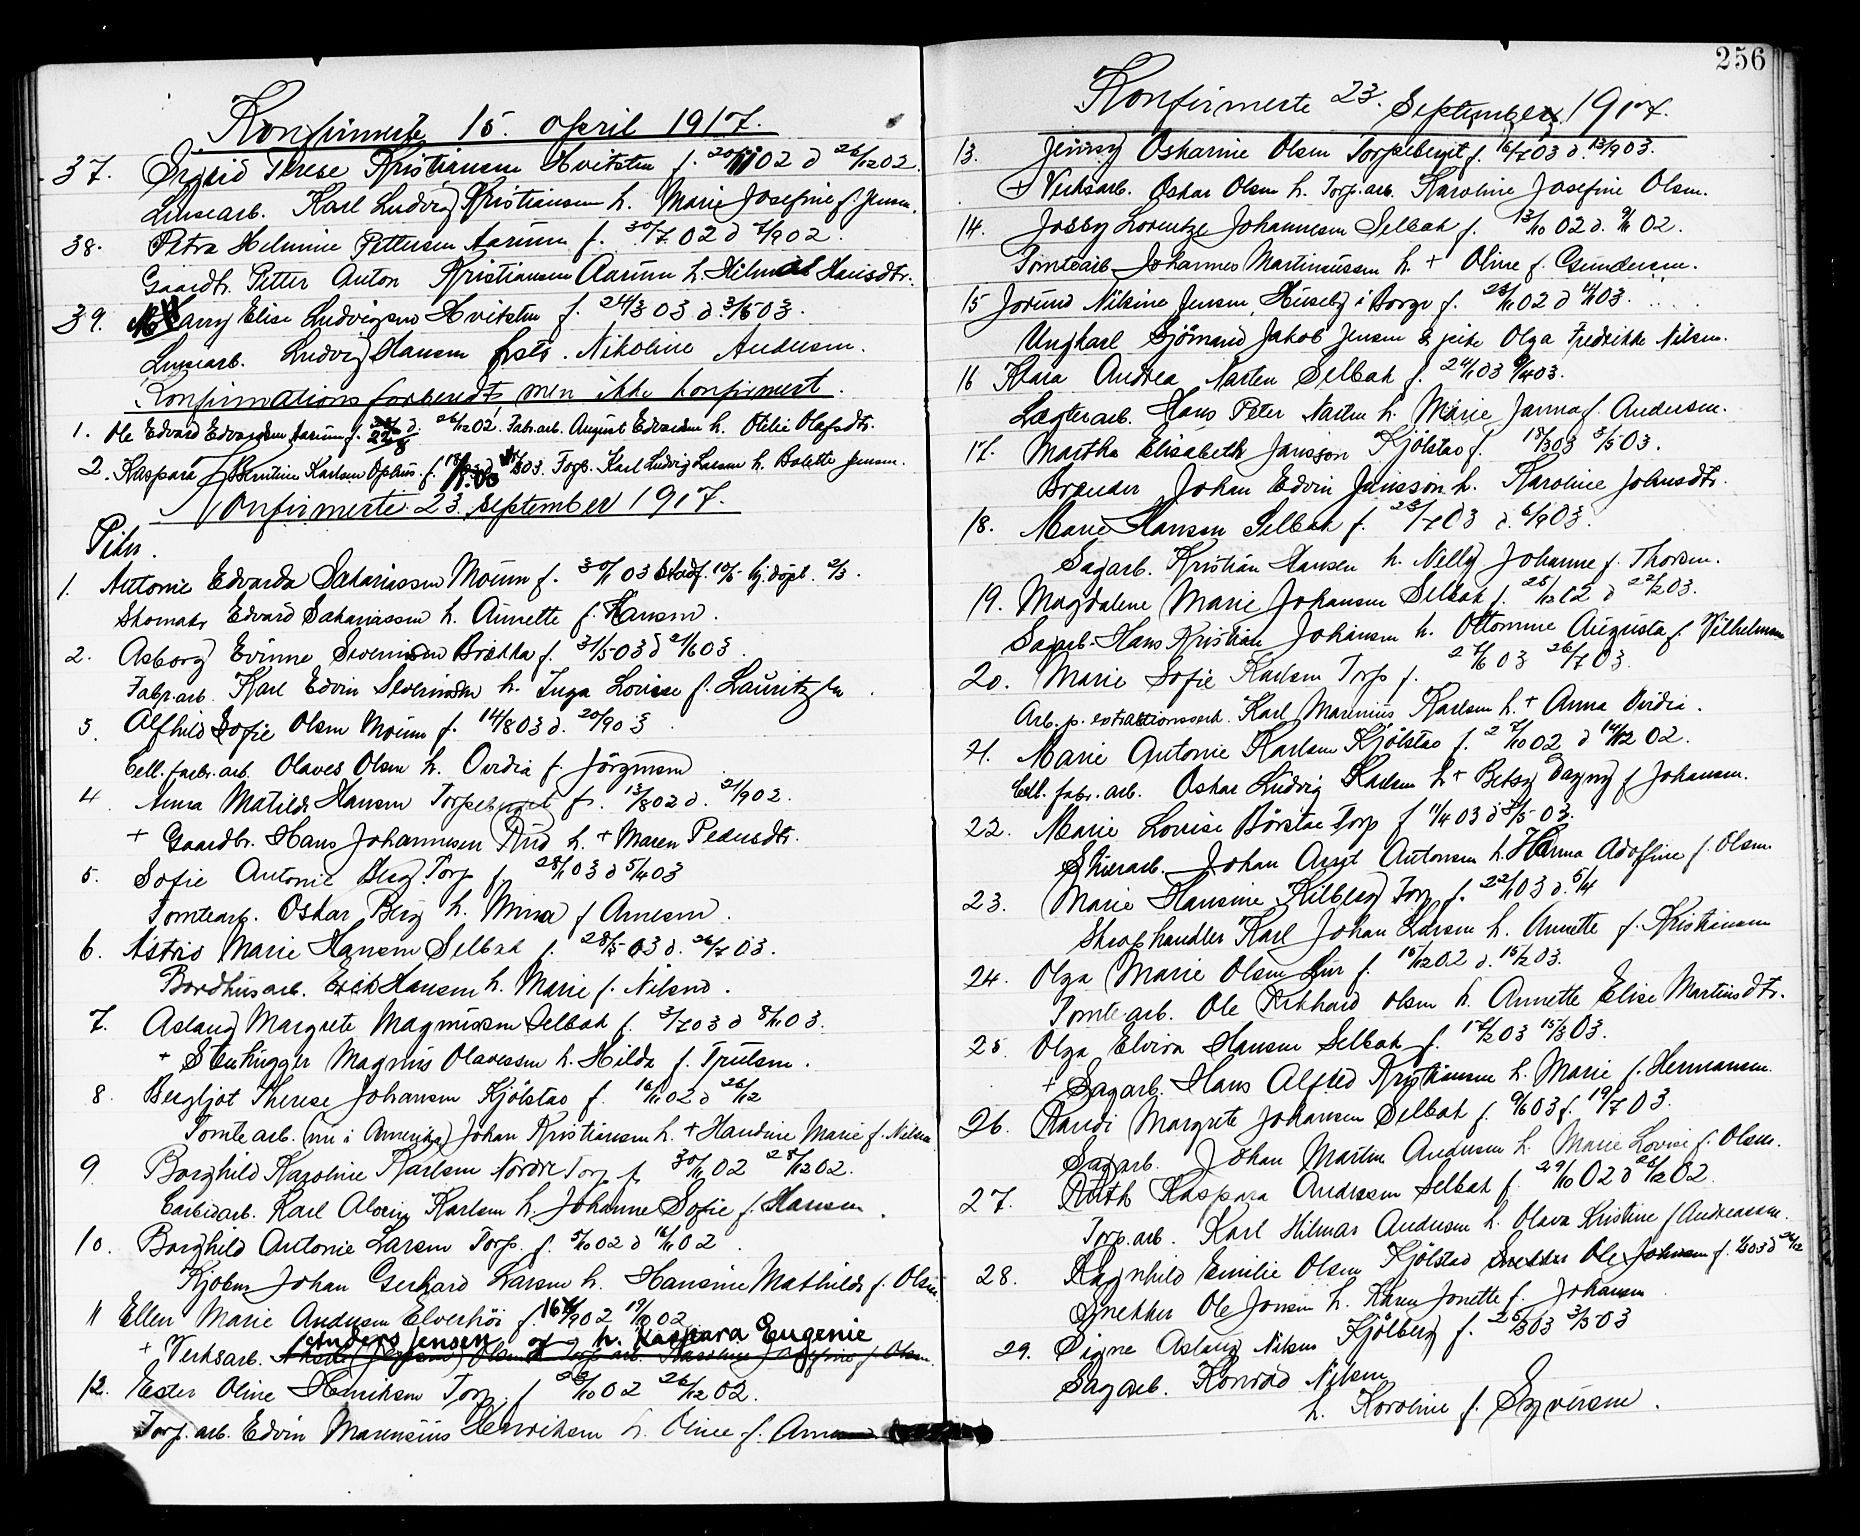 Konfirmerte 15. April 1917.
37. Sigrid Therese Kristiansen Hvitsten f. 20/11 02 d 26/12 02.
Linsearb. Karl Ludvig Kristiansen h. Marie Josefine f. Jensen.
38. Petra Helmine Pettersen Aarum f. 30/7 02 d 7/9 02.
Gaardbr. Petter Anton Kristiansen Aarum h. Hilmas Hansdtr.
39. Fanny Elise Ludvigsen Hvitsten f. 24/3 03 d. 3/5 03.
Linsearb. Ludvig Hansen h. Nikoline Andersen.
Konfirmationsforberedt, men ikke konfirmert.
1. Ole Edvard Edvardsen Aarum f. d. 26/12 02. Fabr.arb. August Edvardsen h. Otilie Olafsdtr.
2. Kaspara Karlsen Ophus f. 03. Torp. Karl Ludvig Larsen h. Bolette Jensen.
Konfirmerte 23. September 1917.
Piker.
1. Antonie Edvarda Sakariassen Moum f. 30/1 03 10/5 hj.døpt. 2/3.
Skomaker Edvard Sakariassen h. Annette f. Hansen.
2. Asborg Evinne Brekka f. 31/5 03 d 21/6 03.
Fabr.arb. Karl Edvin h. Inga Lovise f. Lauritzen
3. Alfhild Sofie Olsen Moum f. 14/8 03 d. 20/9 03
Cell. fabr. arb. Olaves Olsen h. Ovidia f. Jörgensen
4. Anna Matilde Hansen Torpeberget f. 13/8 02 d. 21/9 02.
+ Gaardbr. Hans Johannesen Rud h. + Maren Pedersdtr.
5. Sofie Antonie Berg Torp f. 28/1 03 d 5/4 03
Tomtearb. Oskar Berg h. Mina f Arnesen.
6. Astrid Marie Hansen Selbak f. 28/5 03 d. 26/7 03.
Bordhusarb. Erik Hansen h. Marie f. Nilsen.
7. Aslaug Margrete Magnussen Selbak f. 3/7 03 d 8/11 03.
+ Stenhugger Magnus Olavessen h. Hilda f. Trulsen.
8. Bergljot Therese Johansen Kjölstad f. 16/11 02 d 26/12
Tomtearb. (nu i Amerika) Johan Kristiansen h. + Handine Marie f. Nilsen
9. Borghild Karoline Karlsen Nordre Torp f. 30/11 02 28/12 02.
Carbidarb. Karl Karlsen h. Johanne Sofie f. Hansen.
10. Borghild Antonie Larsen Torp. f. 5/10 02 d 16/11 02.
Kjøbm. Johan Gerhard Larsen h. Hansine Mathilde f. Olsen.
11 Ellen Marie Andersen Elverhöi f. 16/9 02 19/10 02
Anders Jensen og h. Kaspara Eugenie
+ Verksarb.
12. Ester Oline Henriksen Torp f 28/10 02 26/12 02.
Torp.arb. Edvin Marensius Henriksen h. Oline f.
256
Konfirmerte 23. September 1917.
13. Jenny Oskarine Olsen Torpeberget f. 16/7 03 d. 13/9 03.
+ Verksarb. Oskar Olsen h. Torp.arb. Karoline Josefine Olsen.
14. Josby Lorentze Johannesen Selbak f. 13/10 02 d. 9/11 02.
Tomtearb. Johannes Martinussen h. + Oline f. Gundersen.
15 Jorund Nilsine Jensen, Huseby i Borge f. 02 d 03.
Ungkarl Sjömand Jakob Jensen & pike Olga Fredrikke Nilsen.
16 Klara Andrea Narten Selbak f. 24/1 03 9/4 03.
Lægterarb. Hans Peter Narten h. Marie Janna f. Andersen.
17. Martha Elisabeth Jansson Kjölstad f. 18/3 03 3/5 03.
Brænder Johan Edvin Jansson h. Karoline Johnsdtr.
18. Marie Hansen Selbak f. 23/7 03 d. 6/9 03.
Sagarb. Kristian Hansen h. Nelly Johanne f. Thorsen.
19. Magdalene Marie Johansen Selbak f. 25/12 02 d 22/2 03.
Sagarb. Hans Kristian Johansen h. Ottomine Augusta f. Vilhelmsen
20. Marie Sofie Karlsen Torp f. 27/6 03 26/7 03.
Arb. p. extraktionsverk. Karl Marenius Karlsen h. + Anna Ovidia.
21. Marie Antonie Karlsen Kjölstad f. 27/10 02 d 14/12 02.
Cell. fabr. arb. Oskar Ludvig Karlsen h + Betsy Dagny f Johansen.
22. Marie Lovise Börstad Torp f 11/4 03 d 31/5 03.
Skibsarb. Johan Aujst Antonsen h. Hanna Adolfine f. Olsen
23. Marie Hansine Kilberg Torp f. 22/1 03 d. 5/4
Skraphandler Karl Johan Larsen h. Annette f. Kristiansen
24. Olga Marie Olsen Lin f. 15/12 02 d. 15/2 03.
Tomtearb. Ole Rikhard Olsen h. Annette Elise Martinsdtr.
25. Olga Elvira Hansen Selbak f. 17/2 03 15/3 03.
+ Sagarb. Hans Alfred Kristiansen h. Marie f. Hermansen
26. Randi Margrete Johansen Selbak f. 9/6 03 f. 19/7 03.
Sagarb. Johan Martin Andersen h. Marie Lovise f. Olsen.
27. Ruth Kaspara Andersen Selbak f. 29/10 02 d 26/12 02.
Torp.arb. Karl Hilmar Andersen h. Olava Kristine f Andreassen.
28. Ragnhild Emilie Olsen Kjölstad Snekker Ole Johnsen f. 03 d 26/12
Snekker Ole Jonsen h. Karen Jonette f. Johansen
29. Signe Aslaug Nilsen Kjölberg f. 25/3 03 3/5 03
Sagarb. Konrad Nilsen
h. Karoline f. Syversen.